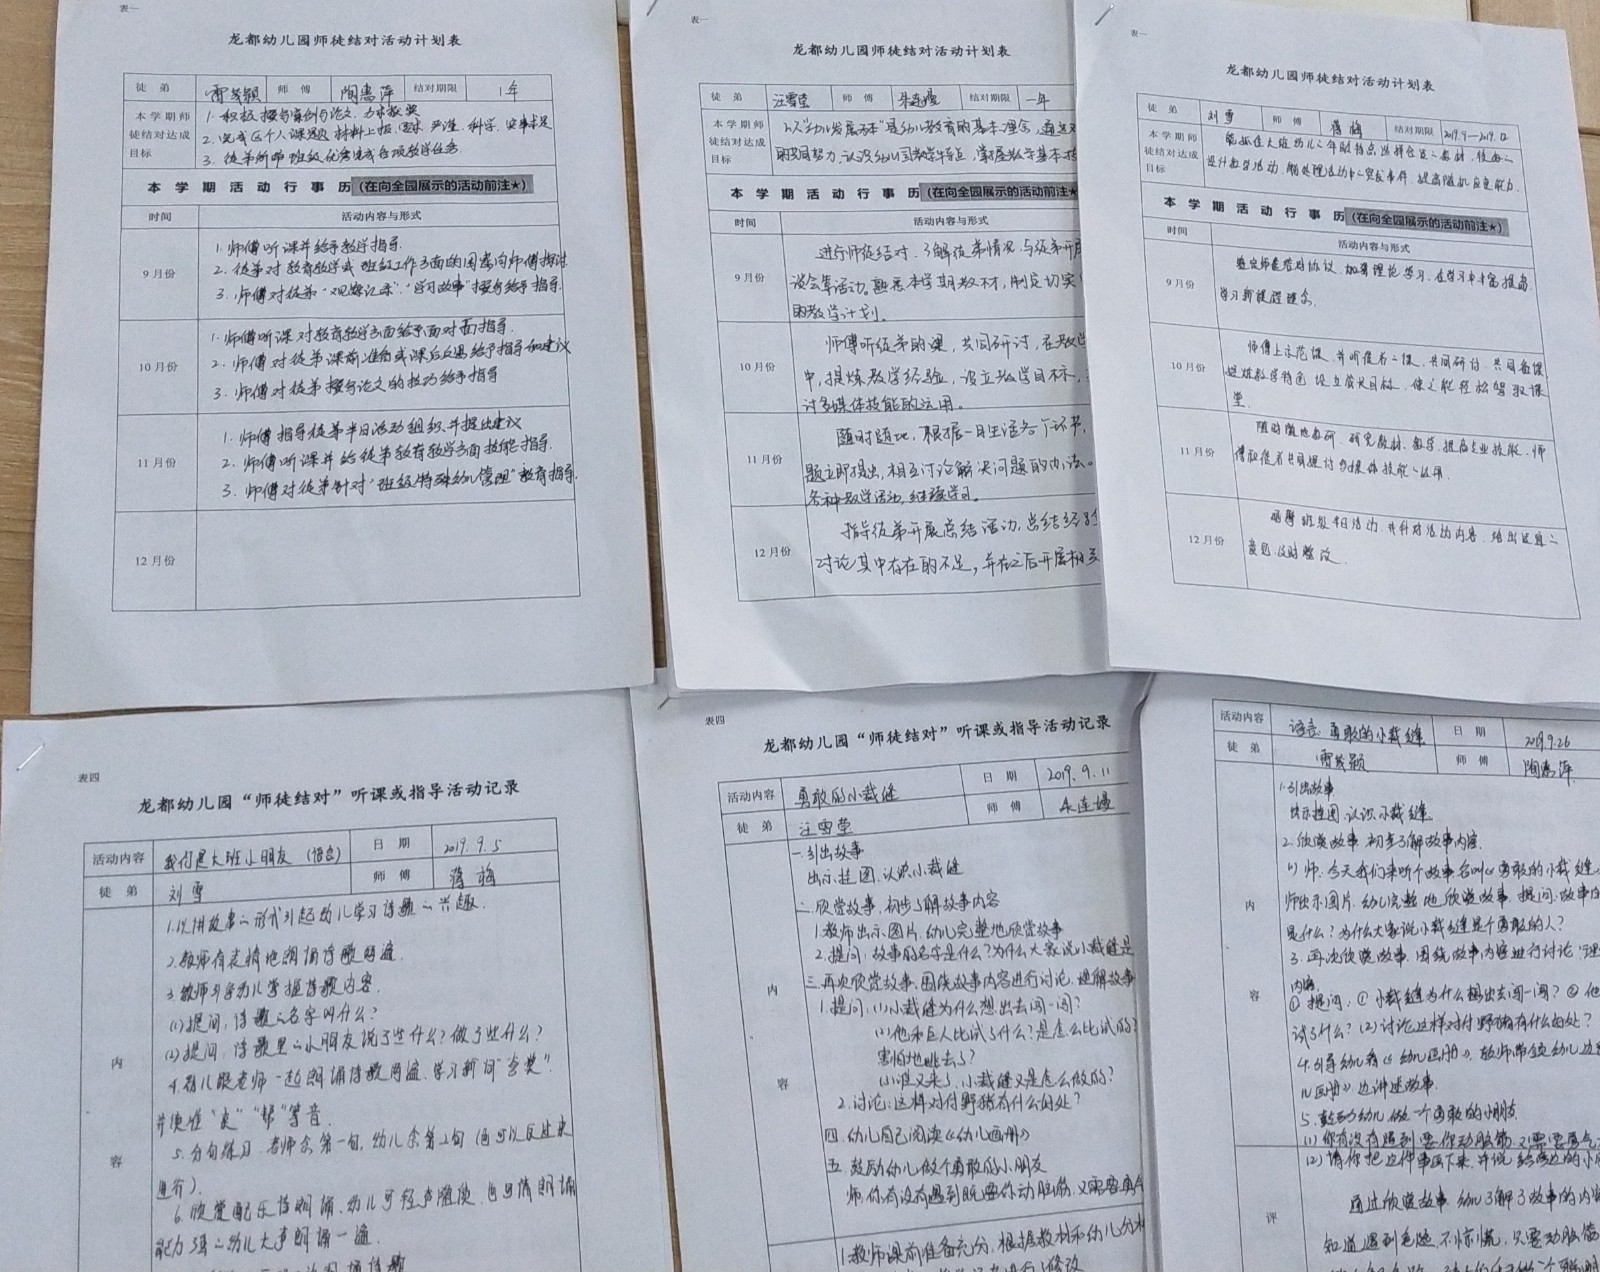 表一
龙都幼儿园师徒结对活动计划表
徒 弟 雷 颖 师 傅 陶惠萍 结对期限 1年
本学期师徒结对达成目标
1. 积极撰写案例与论文,力求获奖
2. 完成区个人课题的材料上报,要求严谨、科学、实事求是
3. 徒弟所带班级优秀完成各项教学任务.
本学期活动行事历(在向全园展示的活动前注★)
时间 活动内容与形式
9月份
1. 师傅听课并给予教学指导.
2. 徒弟对教育教学或班级工作方面的困惑向师傅探讨
3. 师傅对徒弟“观察记录”、“学习故事”撰写给予指导.
10月份
1. 师傅听课对教育教学方面给予面对面指导.
2. 师傅对徒弟课前准备或课后反思给予指导和建议
3. 师傅对徒弟撰写论文的技巧给予指导
11月份
1. 师傅指导徒弟半日活动组织并提出建议
2. 师傅听课并给徒弟教育教学方面技能指导.
3. 师傅对徒弟针对“班级特殊幼儿管理”教育指导.
12月份
表一
龙都幼儿园师徒结对活动计划表
徒 弟 汪雪莹 师 傅 朱连嫚 结对期限 一年
本学期师徒结对达成目标
以“幼儿发展为本”是幼儿教育的基本理念,通过
的共同努力,认识幼儿园教学特点,掌握教学基本技
本学期活动行事历(在向全园展示的活动前注★)
时间 活动内容与形式
9月份
进行师徒结对、了解徒弟情况,与徒弟开展
谈会等活动,熟悉本学期教材,制定切实
的教学计划。
10月份
师傅听徒弟的课,共同研讨,在教学
中,提炼教学经验,设立教学目标,
讨多媒体技能的运用。
11月份
随时随地,根据一日生活各个环节,
题立即提出,相互讨论解决问题的办法。
各种教学活动,继续学习。
12月份
指导徒弟开展总结活动,总结经验
讨论其中存在的不足,并在之后开展相关
表一
龙都幼儿园师徒结对活动计划表
徒 弟 刘雪 师 傅 蒋梅 结对期限 2019.9—2019.12
本学期师徒结对达成目标
能抓住大班幼儿之年龄特点选择合适之教材,
设计教学活动,能处理活动中之突发事件,提高随机应变能力.
本学期活动行事历(在向全园展示的活动前注★)
时间 活动内容与形式
9月份
签定师徒结对协议,加强理论学习,在学习中丰富提高,
学习新课程理念.
10月份
师傅上示范课,并听徒弟之课,共同研讨,共同备课
提炼教学特色,设立教学目标,使之能轻松驾驭课
堂.
11月份
随时随地教研,研究教材、教学,提高专业技能,师
傅和徒弟共同探讨多媒体技能之运用.
12月份
观摩班级半日活动,并针对活动内容,给出适宜之
意见,及时整改.
表四
龙都幼儿园“师徒结对”听课或指导活动记录
活动内容 我们是大班小朋友(语言) 日 期 2019.9.5
徒 弟 刘雪 师 傅 蒋梅
内容
1. 以讲故事之形式引起幼儿学习诗歌之兴趣.
2. 教师有表情地朗诵诗歌两遍.
3. 教师引导幼儿掌握诗歌内容.
(1)提问:诗歌之名字叫什么?
(2)提问:诗歌里之小朋友说了些什么?做了些什么?
4. 幼儿跟老师一起朗诵诗歌两遍,学习新词“夸奖”.
并读准“衷”“帮”等音.
5. 分句练习,老师念第一句,幼儿念第2句(也可以反过来
进行).
6. 欣赏配乐诗朗诵,幼儿可轻声跟读,也可请朗诵
能力强之幼儿大声朗诵一遍.
表四
龙都幼儿园“师徒结对”听课或指导活动记录
活动内容 勇敢的小裁缝 日 期 2019.9.11
徒 弟 汪雪莹 师 傅 朱连嫚
内容
一.引出故事
出示挂图,认识小裁缝
二.欣赏故事,初步了解故事内容
1.教师出示图片,幼儿完整地欣赏故事
2.提问:故事的名字是什么?为什么大家说小裁缝是
三.再次欣赏故事,围绕故事内容进行讨论,理解故事
1.提问:(1)小裁缝为什么想出去闯一闯?
(2)他和巨人比试了什么?是怎么比试的?
害怕地逃去了?
(3)谁又来了,小裁缝又是怎么做的?
2.讨论:这样对付野猪有什么好处?
四.幼儿自己阅读《幼儿画册》
五.鼓励幼儿做个勇敢的小朋友
师:你有没有遇到既要你动脑筋,又需要勇气
1.教师课前准备充分,根据教材和幼儿分析
活动内容 语言:勇敢的小裁缝 日 期 2019.9.26
徒 弟 雷 颖 师 傅 陶惠萍
内容
1.引出故事
出示挂图,认识小裁缝
2.欣赏故事,初步了解故事内容.
(1)师:今天我们来听个故事,名叫《勇敢的小裁缝
师出示图片,幼儿完整地欣赏故事,提问:故事的
是什么?为什么大家说小裁缝是个勇敢的人?
3.再次欣赏故事,围绕故事内容进行讨论,理
内容.
①提问:①小裁缝为什么想出去闯一闯?②他
试了什么?(2)讨论:这样对付野猪有什么好处?
4.引导幼儿看《幼儿画册》,教师带领幼儿边
儿画册》边讲述故事.
5.鼓励幼儿做一个勇敢的小朋友
(1)你有没有遇到要你动脑筋,又需要勇气
(2)请你把这件事画下来,并说给旁边的小
评
通过欣赏故事,幼儿了解了故事的内
知道遇到危险,不惊慌,只要动脑筋